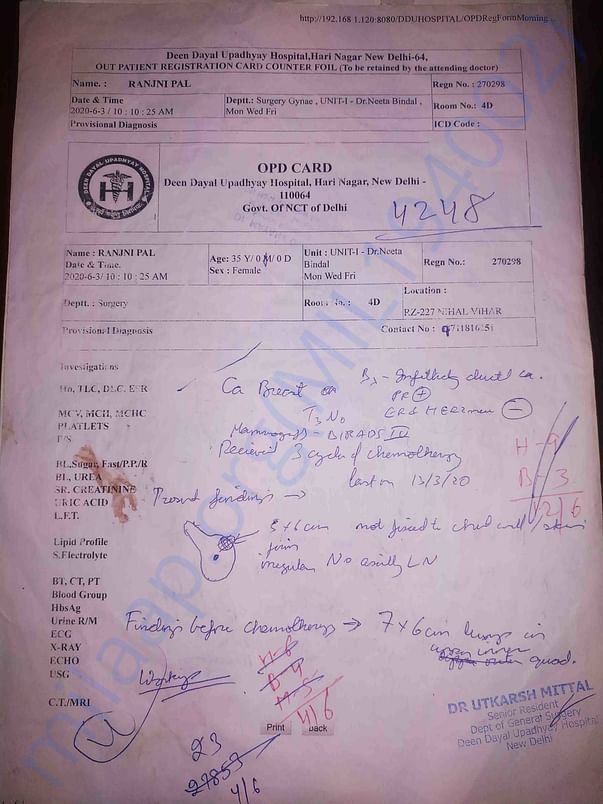 http://192.168 1.120:8080/DDUHOSPITAL/OPDRegFormMorning...
Deen Dayal Upadhyay Hospital,Hari Nagar New Delhi-64,
OUT PATIENT REGISTRATION CARD COUNTER FOIL (To be retained by the attending doctor)
Name. : RANJNI PAL
Regn No. : 270298
Date & Time
2020-6-3 / 10 : 10 : 25 AM
Deptt.: Surgery Gynae , UNIT-I - Dr.Neeta Bindal ,
Mon Wed Fri
Room No.: 4D
Provisional Diagnosis
ICD Code :
DEEN DAYAL UPADHYAY HOSPITAL
OPD CARD
Deen Dayal Upadhyay Hospital, Hari Nagar, New Delhi -
110064
Govt. Of NCT of Delhi
4248
Name : RANJNI PAL
Date & Time.
2020-6-3/ 10 : 10 : 25 AM
Age: 35 Y/ 0 M/ 0 D
Sex : Female
Unit : UNIT-I - Dr.Neeta
Bindal
Mon Wed Fri
Regn No.: 270298
Deptt. : Surgery
Room No. : 4D
Location :
RZ-227 NIHAL VIHAR
Provisional Diagnosis
Contact No :
Investigations
Hb, TLC, DLC, ESR
MCV, MCH, MCHC
PLATLETS
P/S
BL.Sugar, Fast/P.P./R
BL, UREA
SR. CREATININE
URIC ACID
L.F.T.
Lipid Profile
S.Electrolyte
BT, CT, PT
Blood Group
HbsAg
Urine R/M
ECG
X-RAY
ECHO
USG
C.T./MRI
Ca Breast
Bx - Infiltrating ductal ca.
PR +
ER & HER2neu -
T3 N0
Mammography BIRADS IV
Recieved 3 cycle of chemotherapy
last on 13/3/20
H-9
B-3
12/6
Present findings →
5 x 6 cm not fixed to chest wall / skin
firm
irregular No axillary LN
Findings before chemotherapy → 7 x 6 cm lump in
upper inner
outer quad.
H-6
B-4
4/6
Print back
23
27853
4/6
DR UTKARSH MITTAL
Senior Resident
Dept of General Surgery
Deen Dayal Upadhyay Hospital
New Delhi